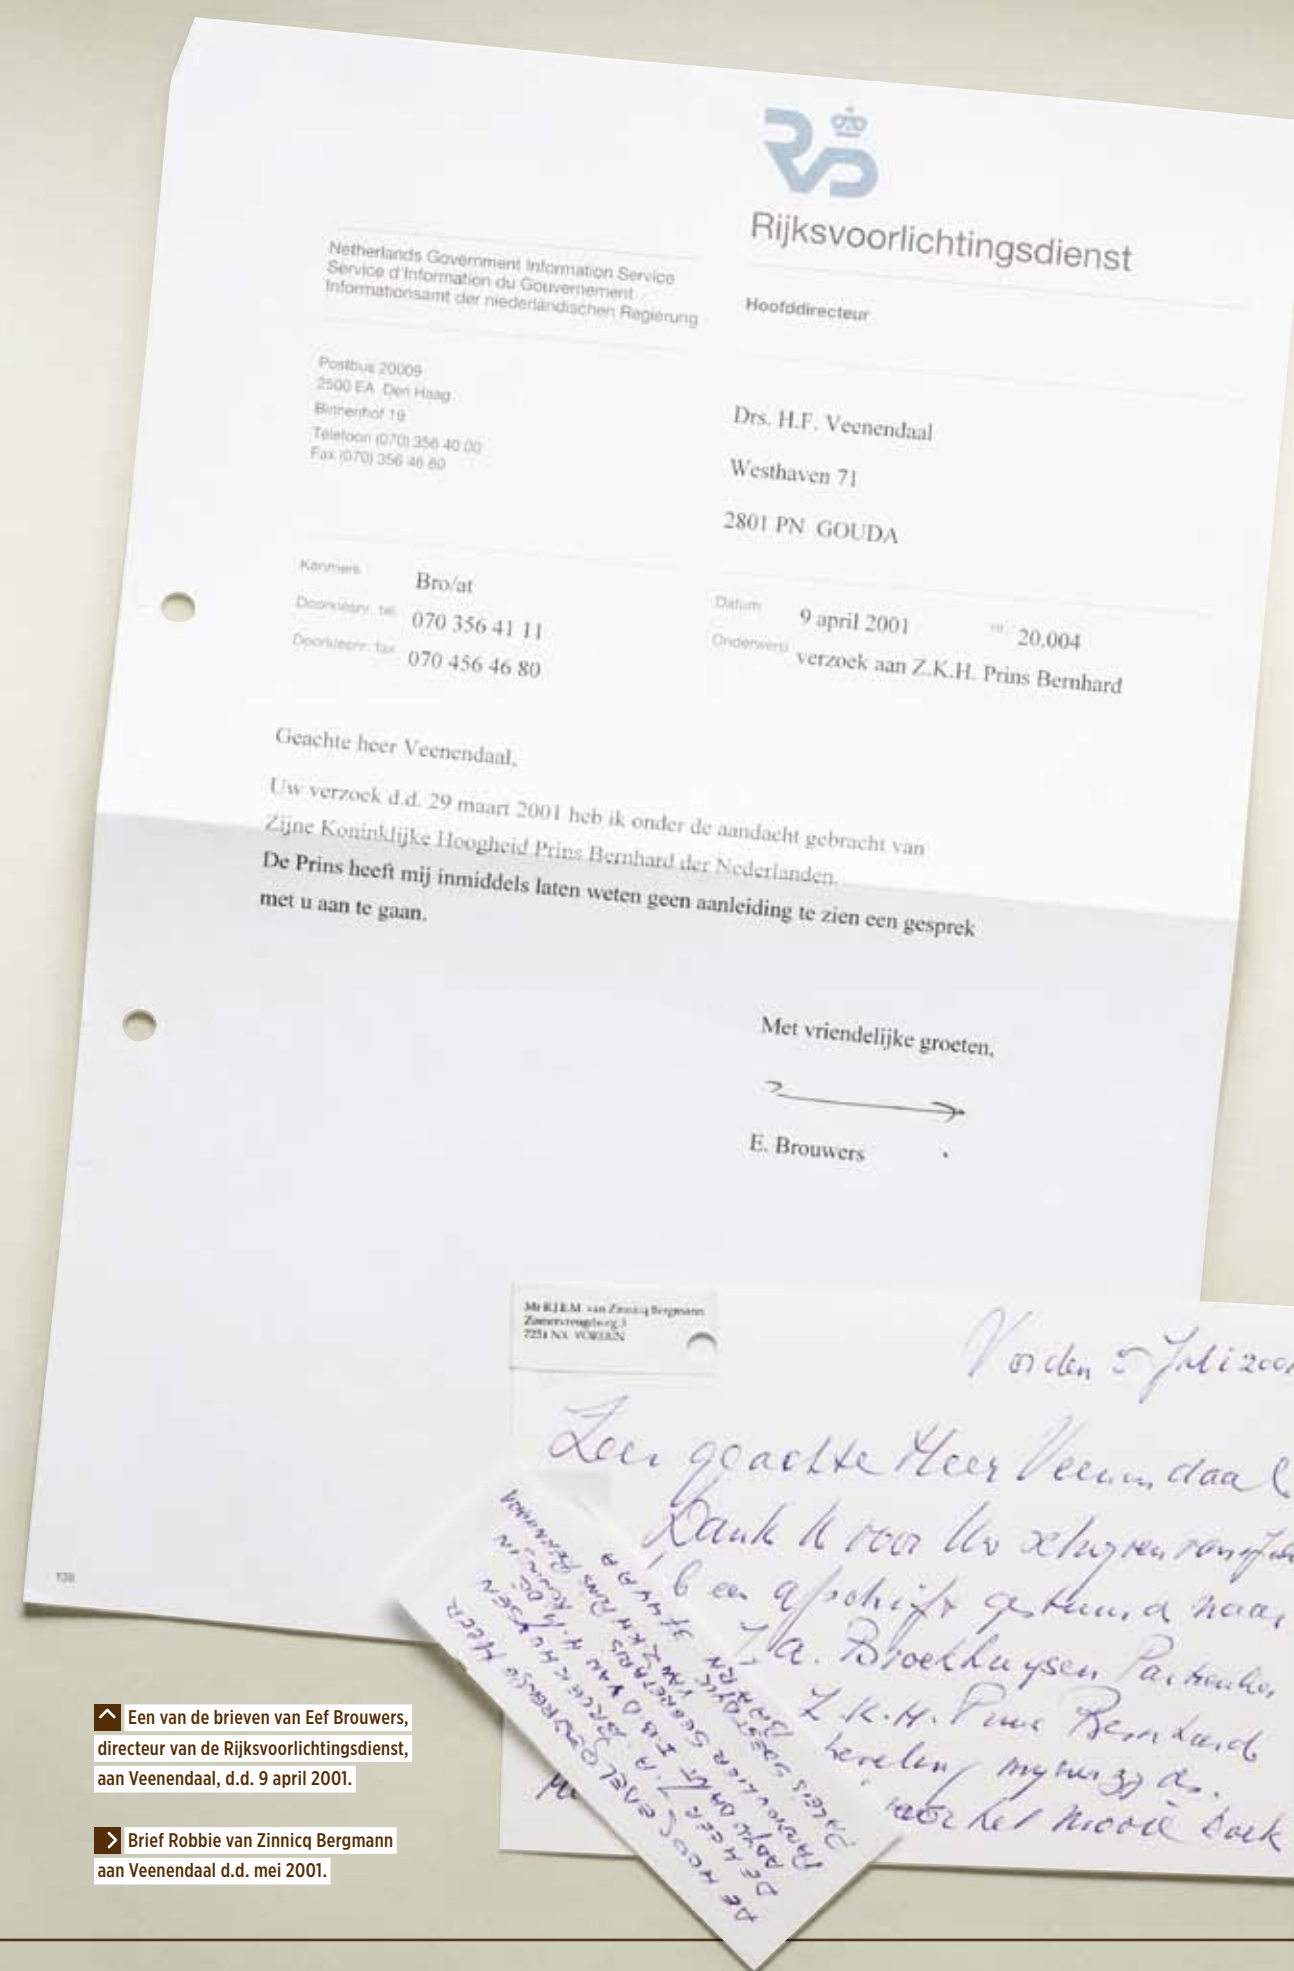 RVD
Rijksvoorlichtingsdienst
Netherlands Government Information Service
Service d'Information du Gouvernement
Informationsamt der niederländischen Regierung
Hoofddirecteur
Postbus 20009
2500 EA Den Haag
Binnenhof 19
Telefoon (070) 356 40 00
Fax (070) 356 46 80
Drs. H.F. Veenendaal
Westhaven 71
2801 PN GOUDA
Kenmerk Bro/at
Doorkiesnr. tel. 070 356 41 11
Doorkiesnr. fax 070 456 46 80
Datum 9 april 2001 nr. 20.004
Onderwerp verzoek aan Z.K.H. Prins Bernhard
Geachte heer Veenendaal,
Uw verzoek d.d. 29 maart 2001 heb ik onder de aandacht gebracht van
Zijne Koninklijke Hoogheid Prins Bernhard der Nederlanden.
De Prins heeft mij inmiddels laten weten geen aanleiding te zien een gesprek
met u aan te gaan.
Met vriendelijke groeten,
E. Brouwers
138
Mr R.J.E.M. van Zinnicq Bergmann
7251 NX VORDEN
Vorden 5 Juli 200
Zeer geachte Heer Veenendaal
Dank U voor Uw schrijven
een afschrift gestuurd naar
Broekhuysen Particulier
Z.K.H. Prins Bernhard
voor het mooie boek
DE HOOGEDELGESTRENGE HEER
DE HEER J.A. BROEKHUYSEN
ADJUDANT I.B.D VAN H.M. DE KONINGIN
PARTICULIER SECRETARIS VAN ZKH PRINS BERNHARD
PALEIS SOESTDIJK
BAARN
Een van de brieven van Eef Brouwers,
directeur van de Rijksvoorlichtingsdienst,
aan Veenendaal, d.d. 9 april 2001.
Brief Robbie van Zinnicq Bergmann
aan Veenendaal d.d. mei 2001.